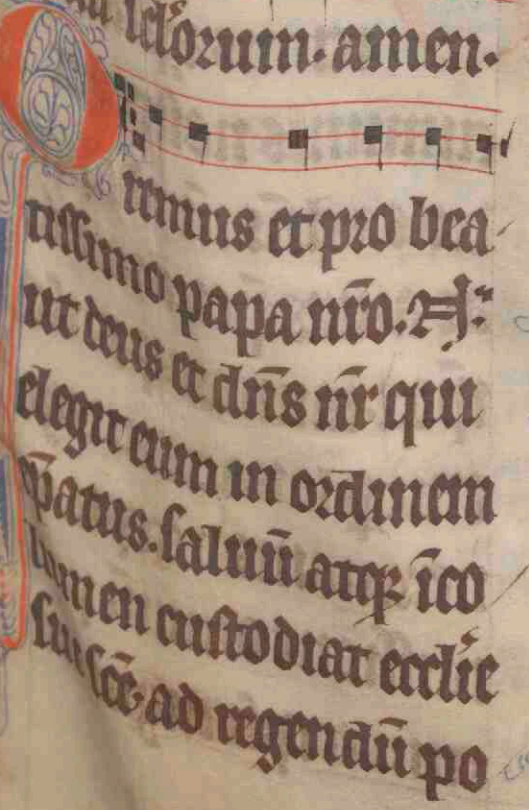 scl̃orum. amen.
Oremus et pro bea
tissimo papa nr̄o. N.
ut deus et dn̄s nr̄ qui
elegit eum in ordinem
ep̄atus. saluū atq; īco
lumen custodiat eccl̄ie
sue sc̄e. ad regendū po